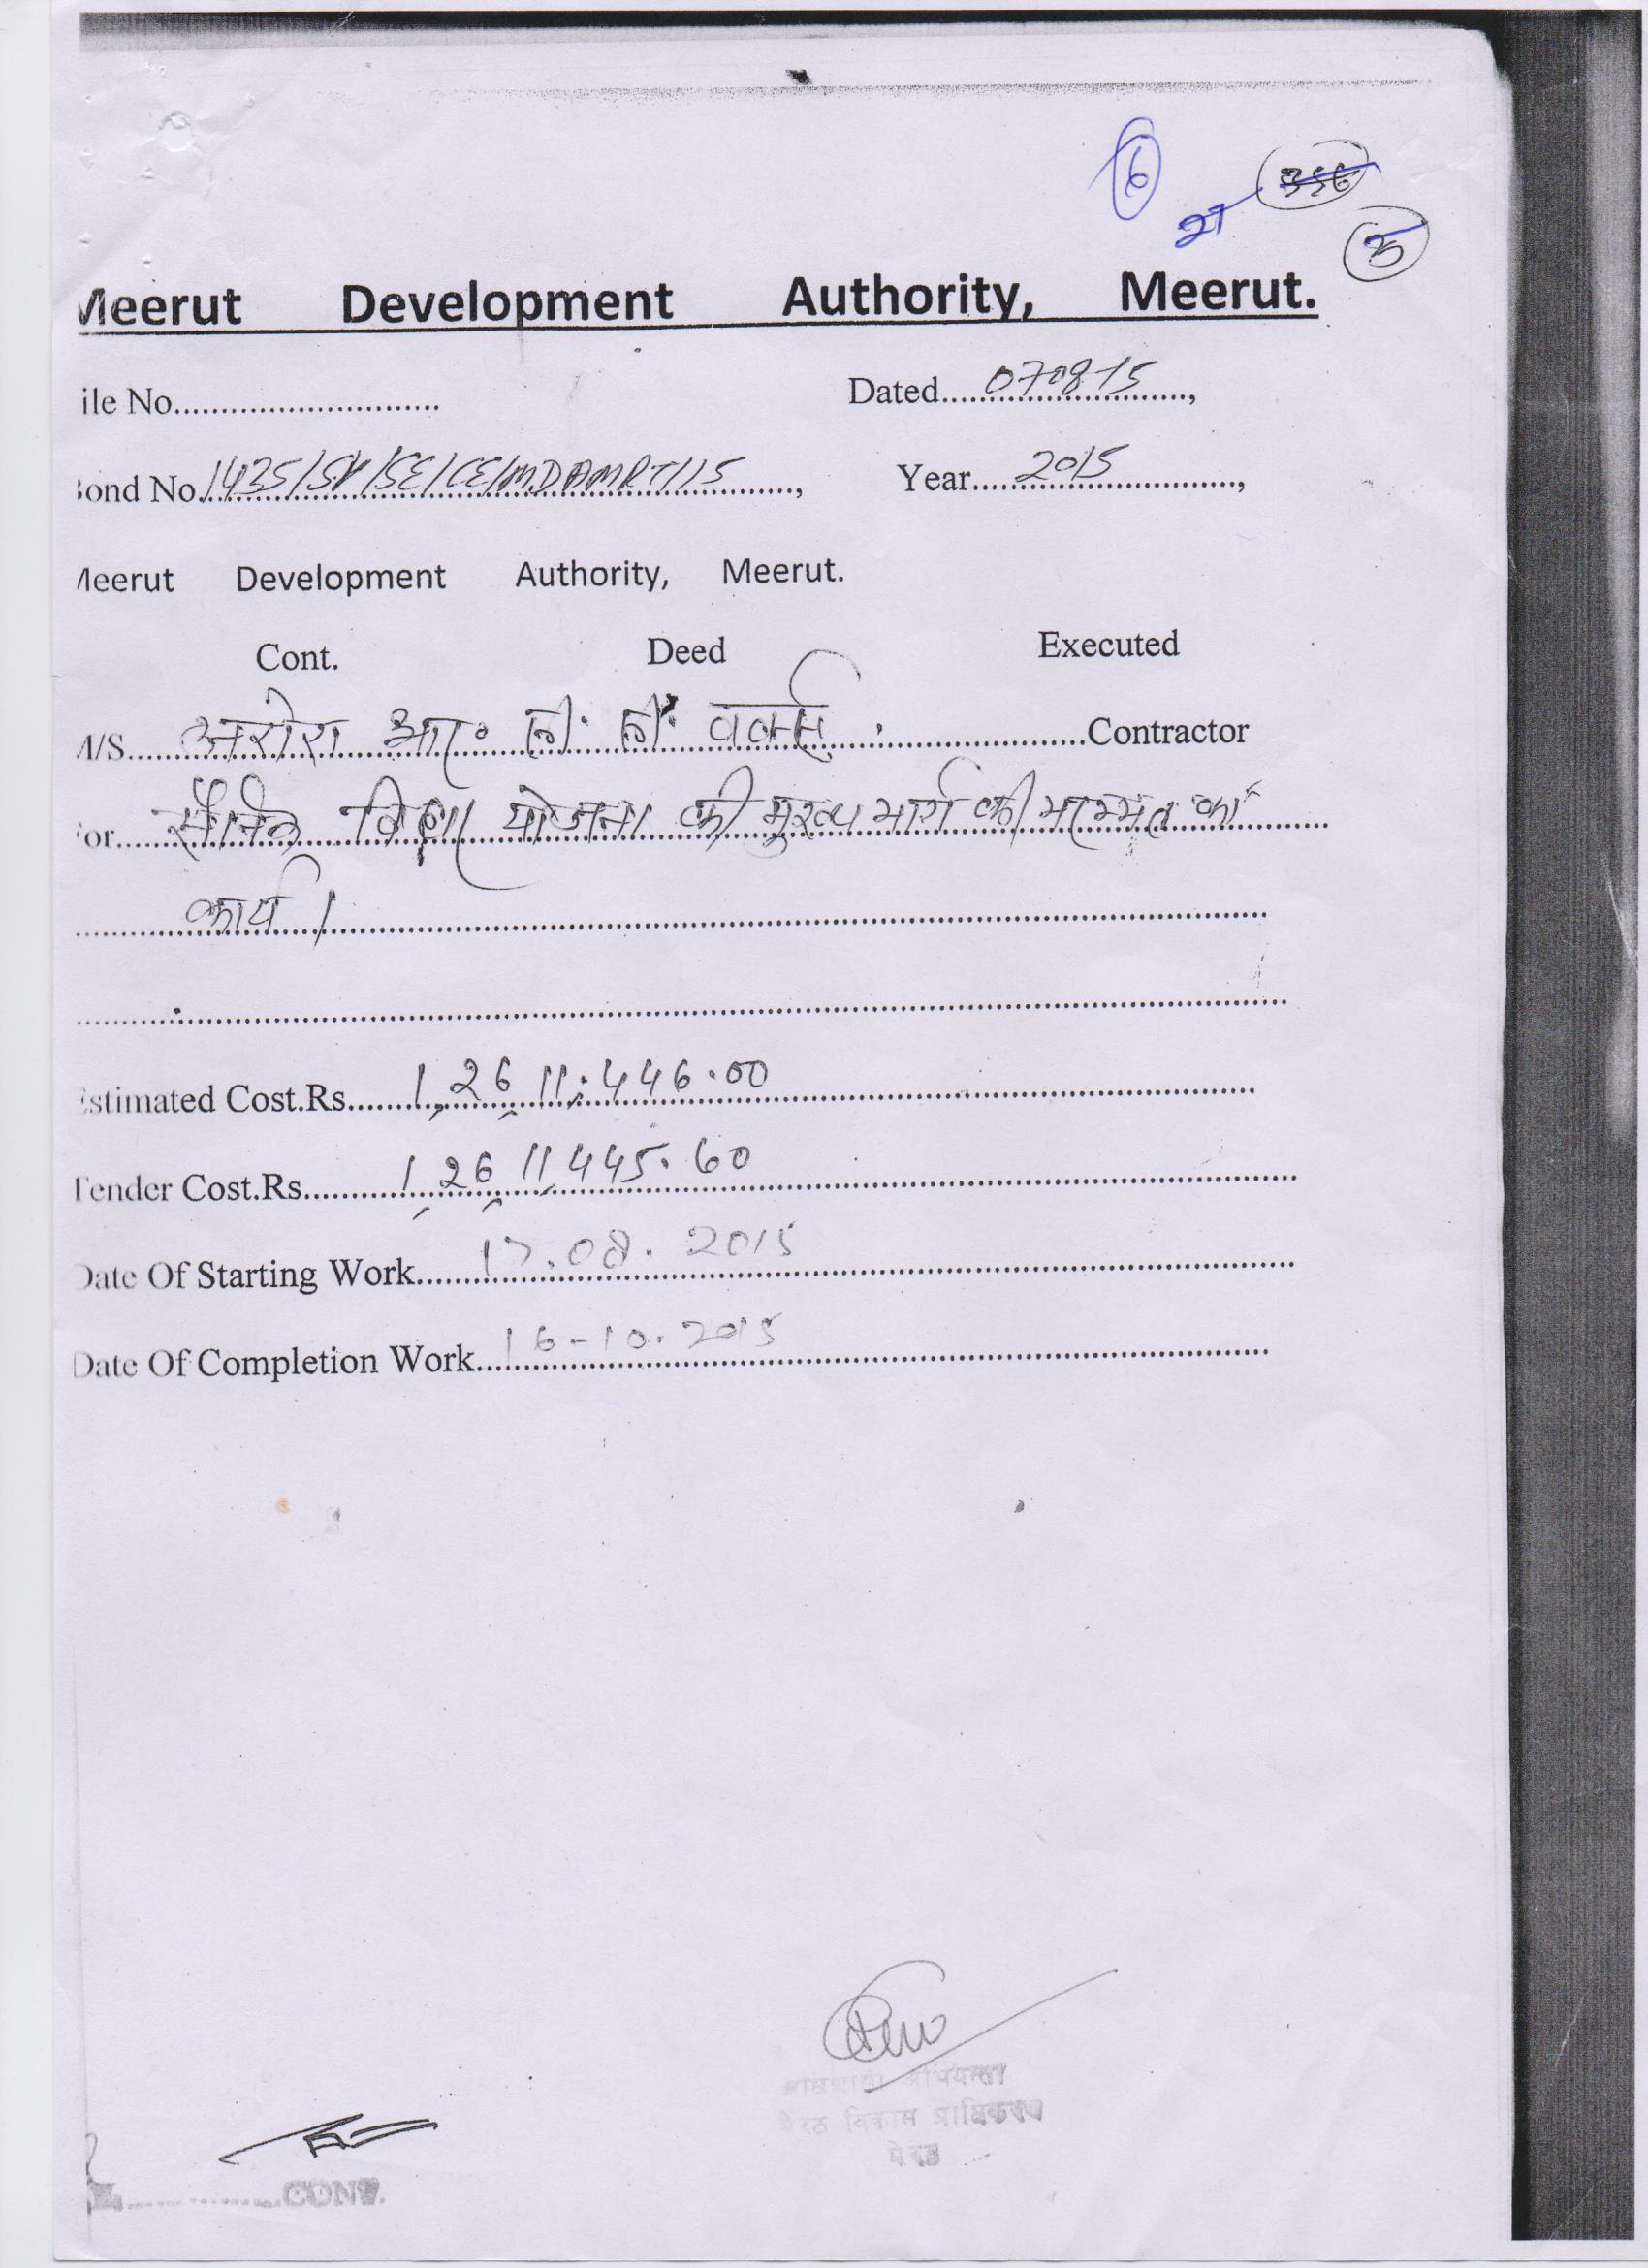 6
27 356
3
Meerut Development Authority, Meerut.
ile No............................ Dated....070815....,
ond No.1435/SV/SE/CE/MDAMRT/15......, Year....2015....,
Meerut Development Authority, Meerut.
Cont. Deed Executed
M/S.....अरोरा आर० सी० सी० वर्क्स..........Contractor
or......सैनिक विहार योजना की मुख्य मार्ग की मरम्मत का
कार्य।
Estimated Cost.Rs.......1,26,11,446.00
Tender Cost.Rs..........1,26,11,445.60
Date Of Starting Work.......17.08.2015
Date Of Completion Work.....16-10.2015
अभियन्ता
मेरठ विकास प्राधिकरण
मेरठ
CONT.